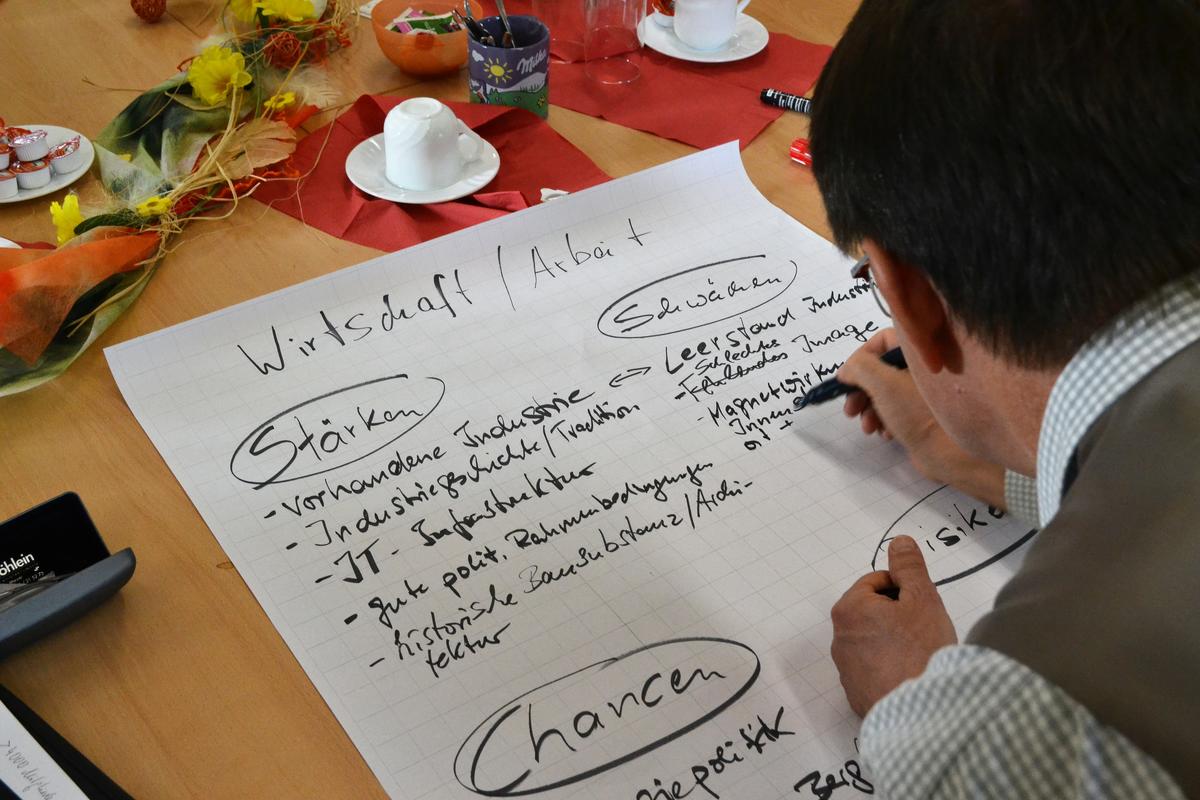 Milka
Wirtschaft / Arbeit
Schwächen
Leerstand Industrie
Schlechtes
Image
- Magnetwirkung
Innen
Stärken
- vorhandene Industrie ↔
- Industriegeschichte/Tradition
- IT - Infrastruktur
- gute polit. Rahmenbedingungen
- historische Bausubstanz/Archi-
tektur
Risike
Chancen
iepolitik
Berg
öhlein